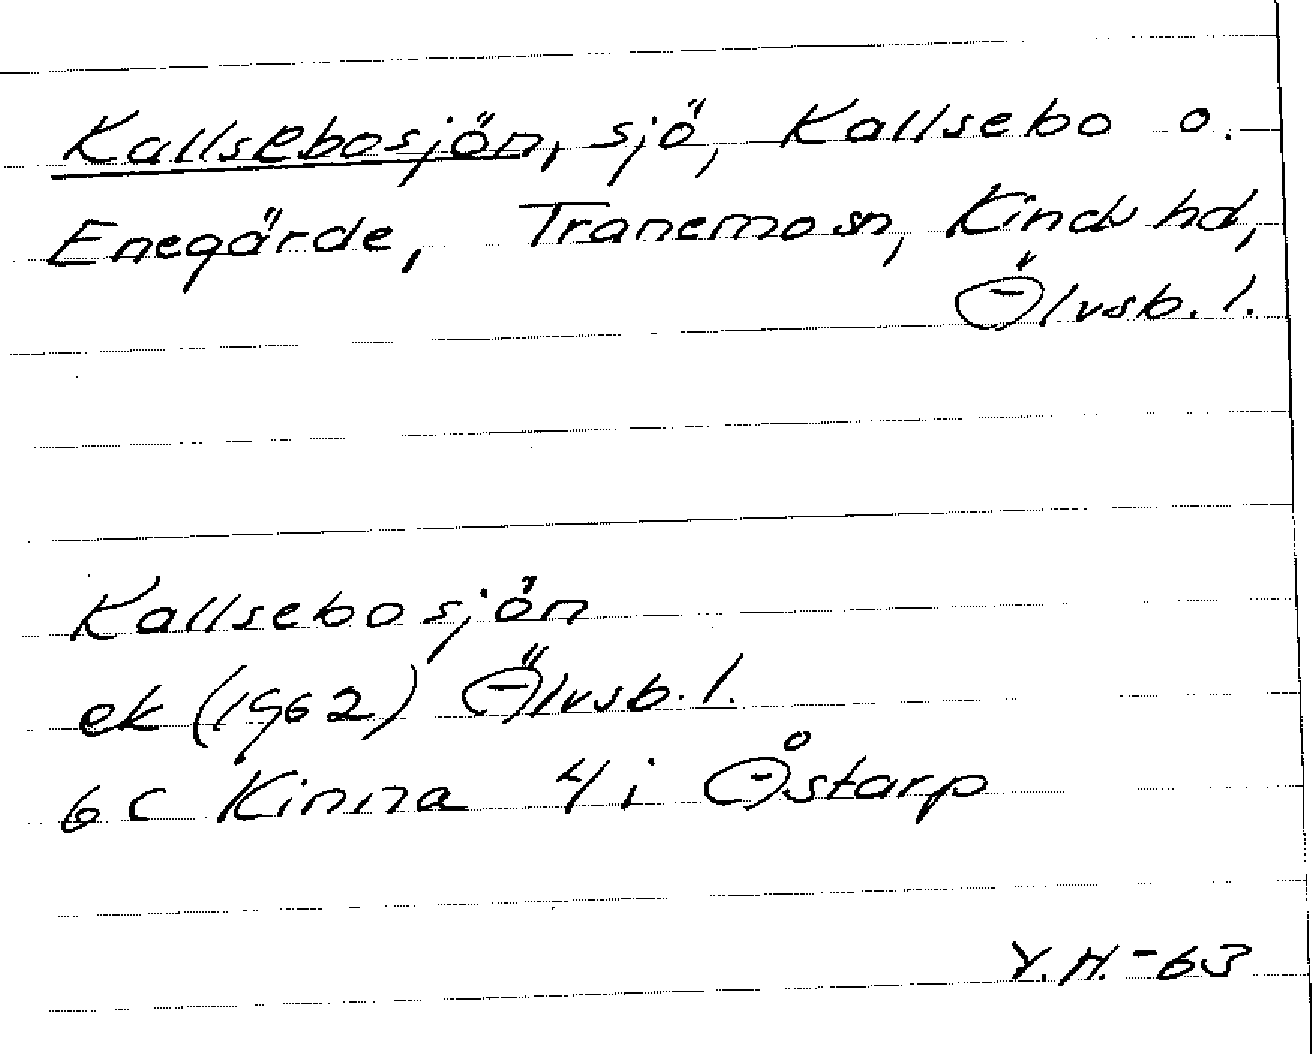 Kallsebosjön, sjö, Kallsebo o.
Enegärde, Tranemo sn, Kinds hd,
Älvsb. l.
Kallsebosjön
ek (1962) Älvsb. l.
6 C Kinna 4 i Åstarp
Y.H.-63